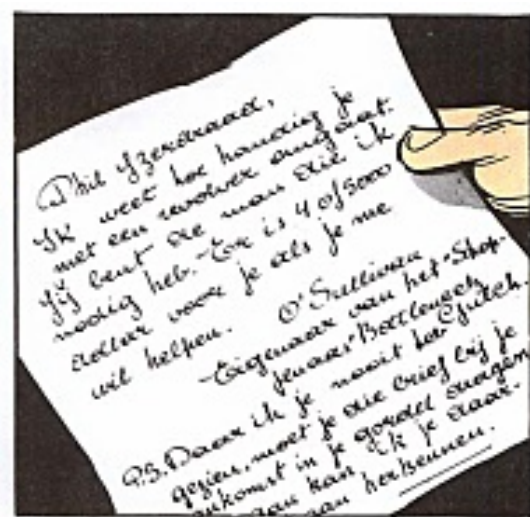 Phil IJzerdraad,
Ik weet hoe handig je
met een revolver omgaat.
Jij bent die man die ik
nodig heb. Er is 4 of 5000
dollar voor je als je me
wil helpen.
O'Sullivan
Eigenaar van het "Shop-
Bottleneck
Gulch.
P.S. Daar ik je nooit heb
gezien, moet je die brief bij je
aankomst in je gordel dragen
kan ik je daar-
aan herkennen.